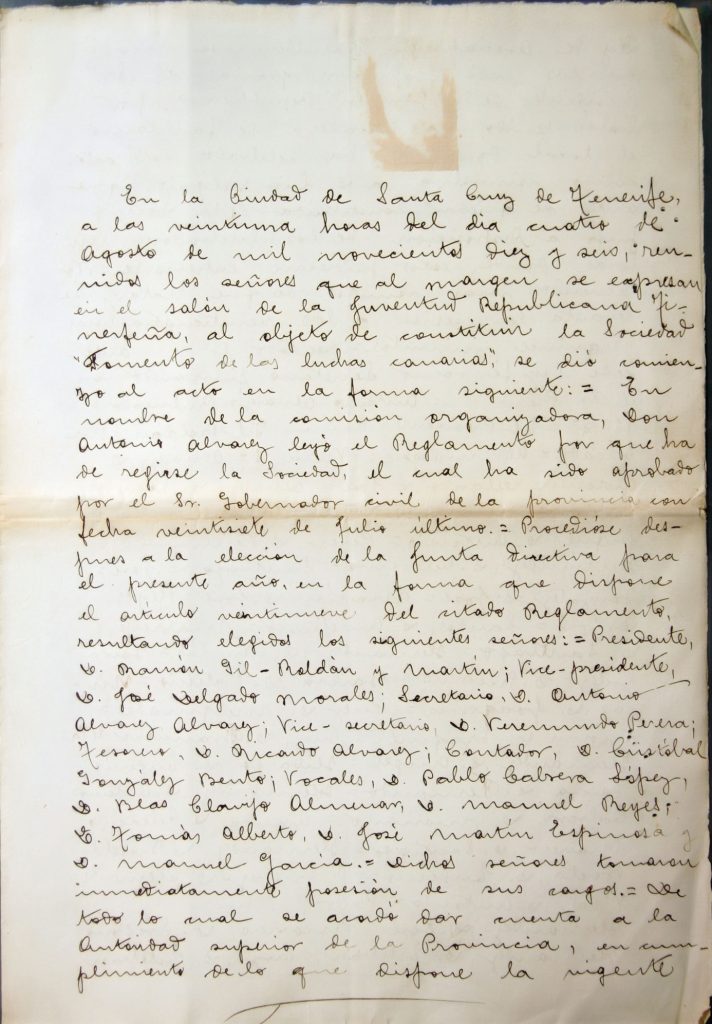 En la Ciudad de Santa Cruz de Tenerife,
a las veintiuna horas del dia cuatro de
Agosto de mil novecientos diez y seis, reu-
nidos los señores que al margen se expresan
en el salón de la Juventud Republicana Ti-
nerfeña, al objeto de constituir la Sociedad
"Fomento de las luchas canarias", se dió comien-
zo al acto en la forma siguiente: = En
nombre de la comisión organizadora, Don
Antonio Alvarez leyó el Reglamento por que ha
de regirse la Sociedad, el cual ha sido aprobado
por el Sr. Gobernador civil de la provincia con
fecha veintisiete de Julio último. = Procedióse des-
pues a la elección de la Junta directiva para
el presente año, en la forma que dispone
el artículo veintinueve del citado Reglamento,
resultando elegidos los siguientes señores: = Presidente,
D. Ramón Gil-Roldán y Martín; Vice-presidente,
D. José Delgado Morales; Secretario, D. Antonio
Alvarez Alvarez; Vice-secretario, D. Veremundo Perera;
Tesorero, D. Ricardo Alvarez; Contador, D. Cristóbal
González Bento; Vocales, D. Pablo Cabrera López,
D. Blas Clavijo Almenar, D. Manuel Reyes;
D. Tomás Alberto, D. José Martín Espinosa y
D. Manuel García. = Dichos señores tomaron
inmediatamente posesión de sus cargos. = De
todo lo cual se acordó dar cuenta a la
Autoridad superior de la Provincia, en cum-
plimiento de lo que dispone la vigente